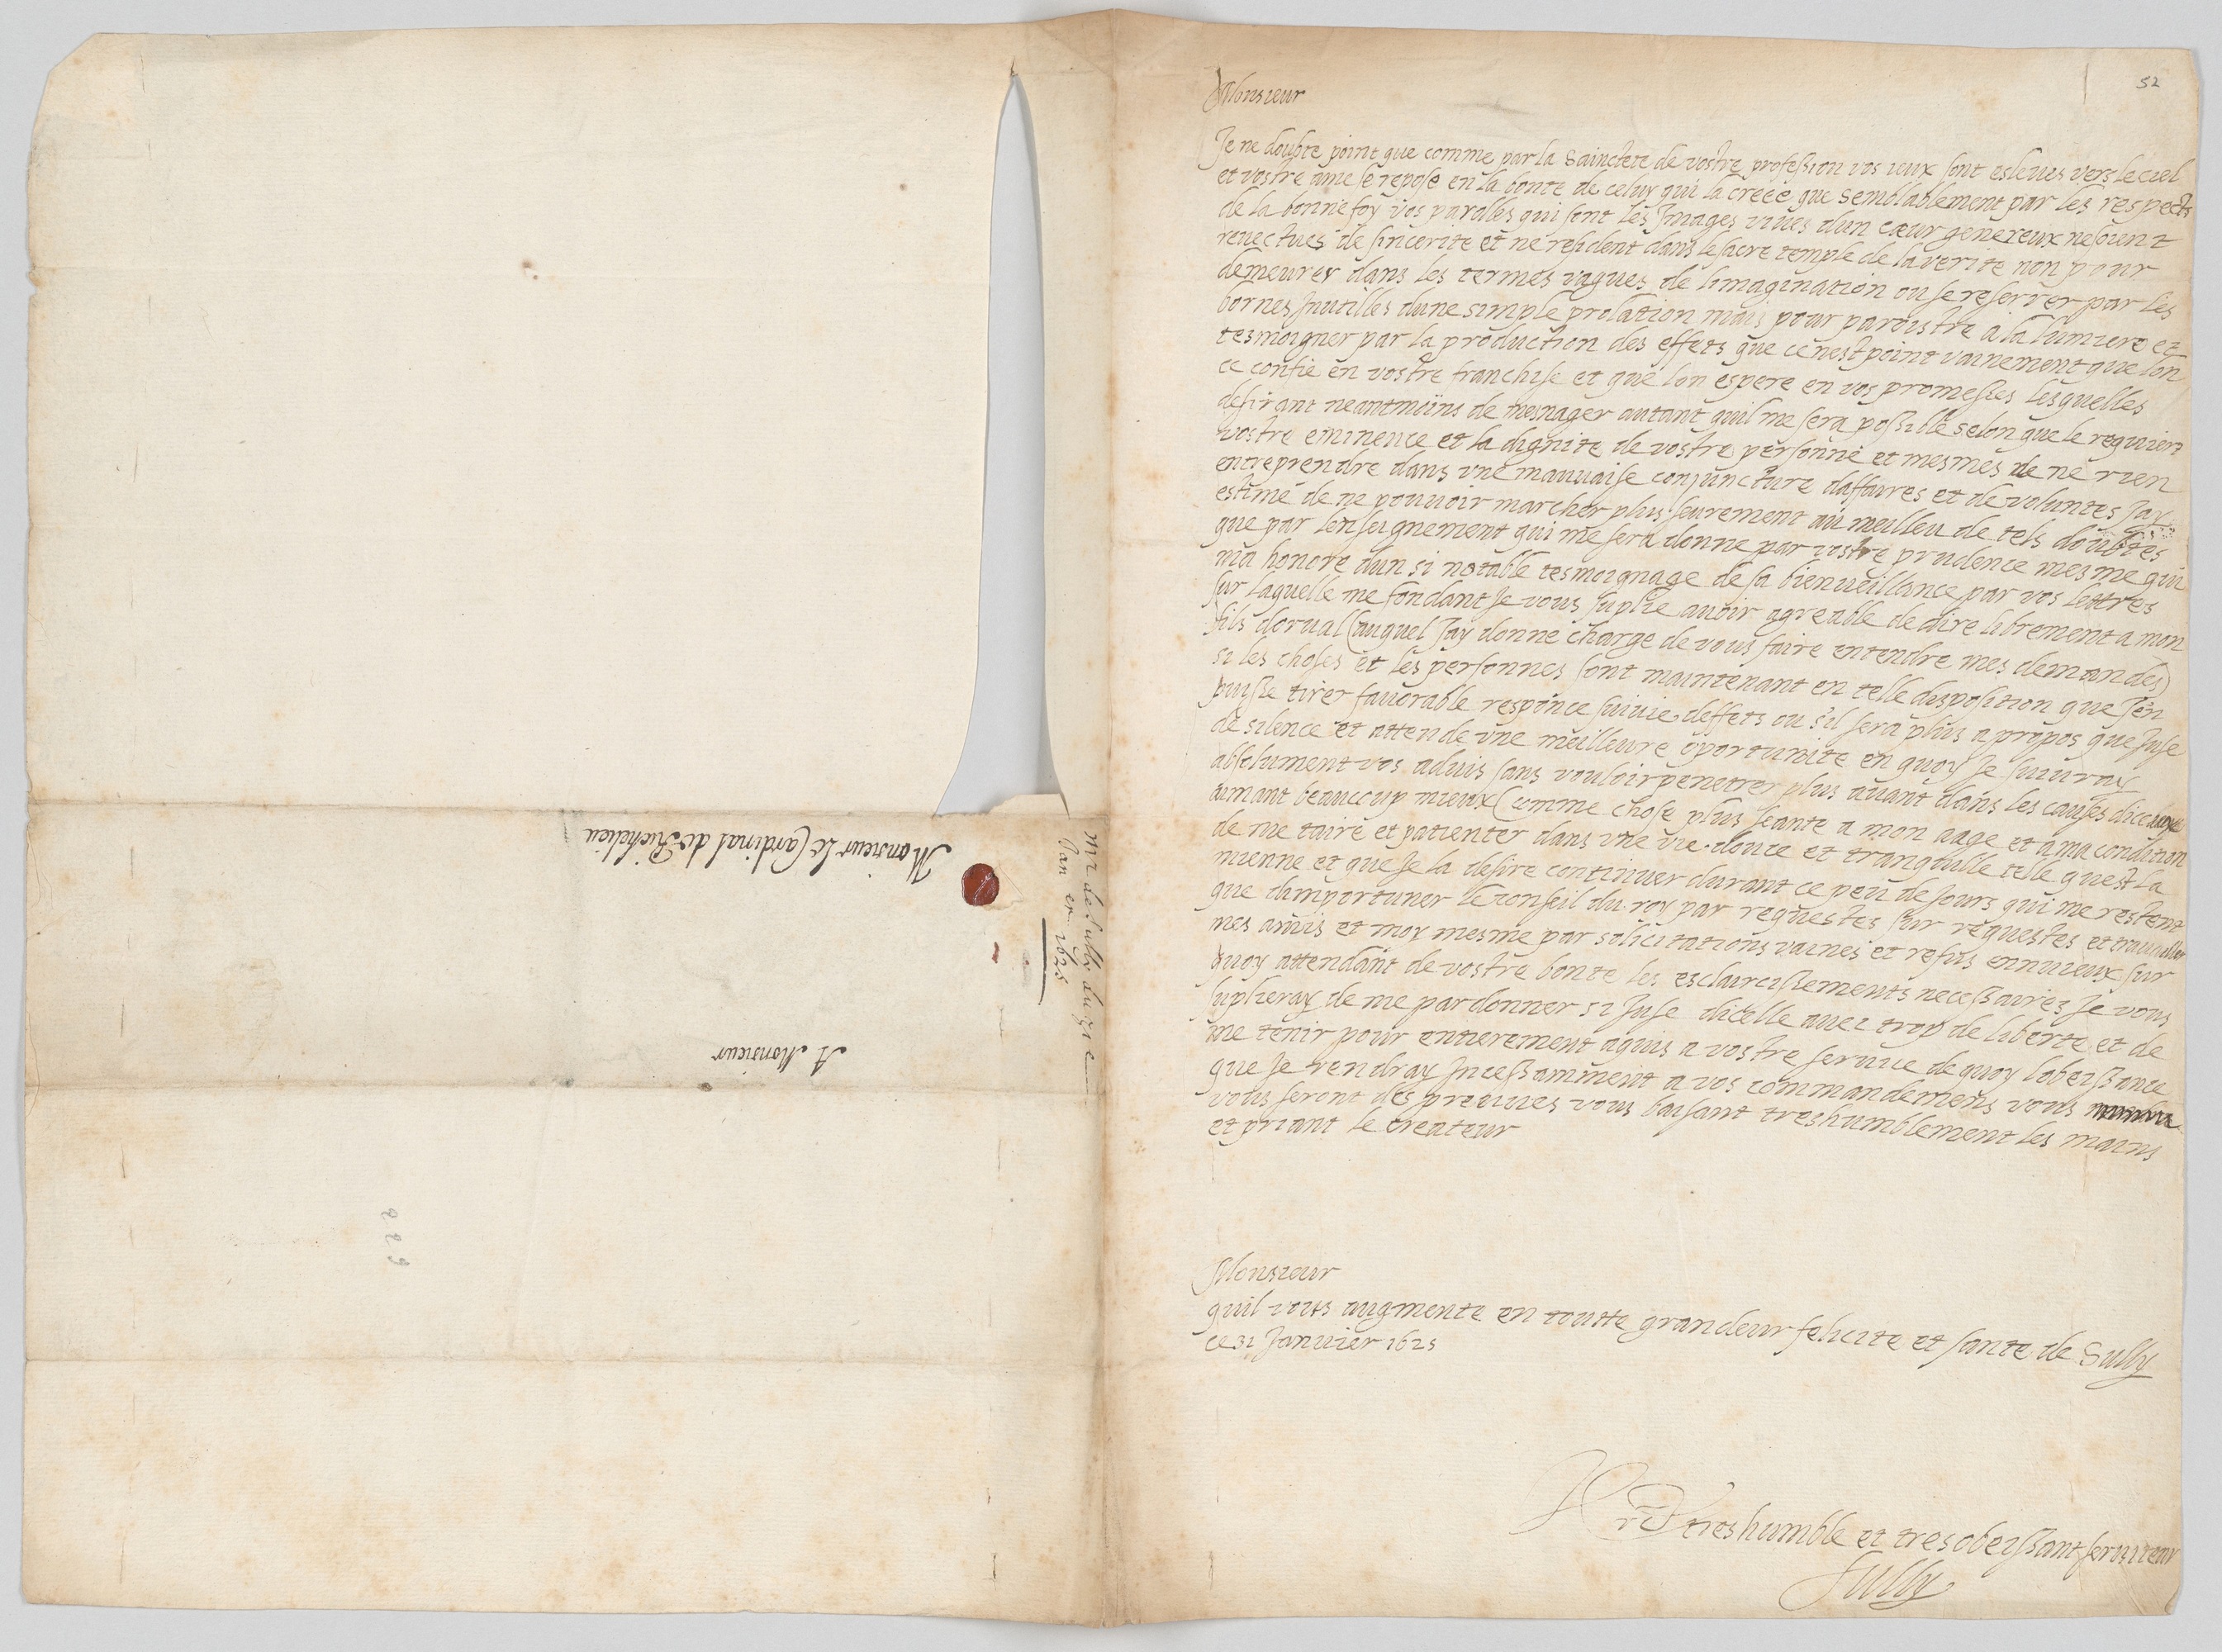 52
Monsieur
Je ne doubte point que comme par la sainctete de vostre profession vos ieux sont esleues vers le ciel
et vostre ame se repose en la bonte de celuy qui la creée que semblablement par les respects
de la bonne foy vos parolles qui sont les Images viues dun cœur genereux ne soient
reuectues de sincerite et ne resident dans le sacre temple de la verite non pour
demeurer dans les termes vagues de limagination ou se reserrer par les
bornes Inutilles dune simple prolation mais pour paroistre a la lumiere et
tesmoigner par la production des effets que ce nest point vainement que lon
ce confie en vostre franchise et que lon espere en vos promesses lesquelles
desirant neantmoins de mesnager autant quil me sera possible selon que le requiert
vostre eminence et la dignite de vostre personne et mesmes de ne rien
entreprendre dans vne mauuaise conjuncture daffaires et de voluntes Jay
estime de ne pouuoir marcher plus seurement au meilleu de tels doubtes
que par lenseignement qui me sera donne par vostre prudence mesme qui
ma honore dun si notable tesmoignage de sa bienueillance par vos lettres
sur laquelle me fondant Je vous suplie auoir agreable de dire librement a mon
fils dorual (auquel Jay donne charge de vous faire entendre mes demandes)
si les choses et les personnes sont maintenant en telle disposition que Jen
puisse tirer fauorable responce suiuie deffets ou s'il sera plus a propos que Juse
de silence et attende vne meilleure oportunite en quoy Je suiuray
absolument vos aduis sans vouloir penetrer plus auant dans les causes diceux
aimant beaucoup mieux (comme chose plus seante a mon aage et a ma condition
de me taire et patienter dans vne vie douce et tranquille telle quest la
mienne et que Je la desire continuer durant ce peu de Jours qui me restent
que dimportuner le conseil du roy par requestes sur requestes et trauailler
mes amis et moy mesme par solicitations vaines et refus ennuieux sur
quoy attendant de vostre bonte les esclaircissements necessaires Je vous
suplieray de me pardonner si Juse dicelle auec trop de liberte et de
me tenir pour entierement aquis a vostre seruice de quoy lobeissance
que Je rendray Incessamment a vos commandemens vous
vous seront des preuues vous baisant treshumblement les mains
et priant le createur
Monsieur
quil vous augmente en toutte grandeur felicite et sante de Sully
ce 31 Januier 1625
treshumble et tresobeissant seruiteur
Sully
A Monsieur
Monsieur Le Cardinal de Richelieu
Mr de Sully du 31 e
Januier 1625